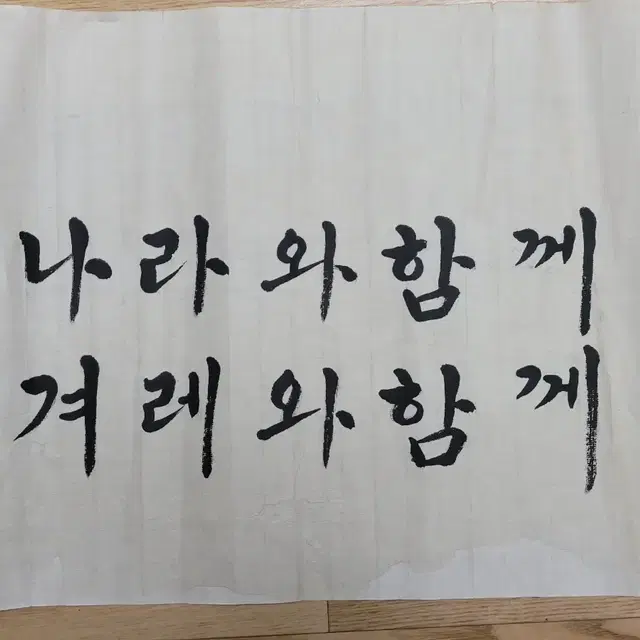 나라와함께
겨레와함께